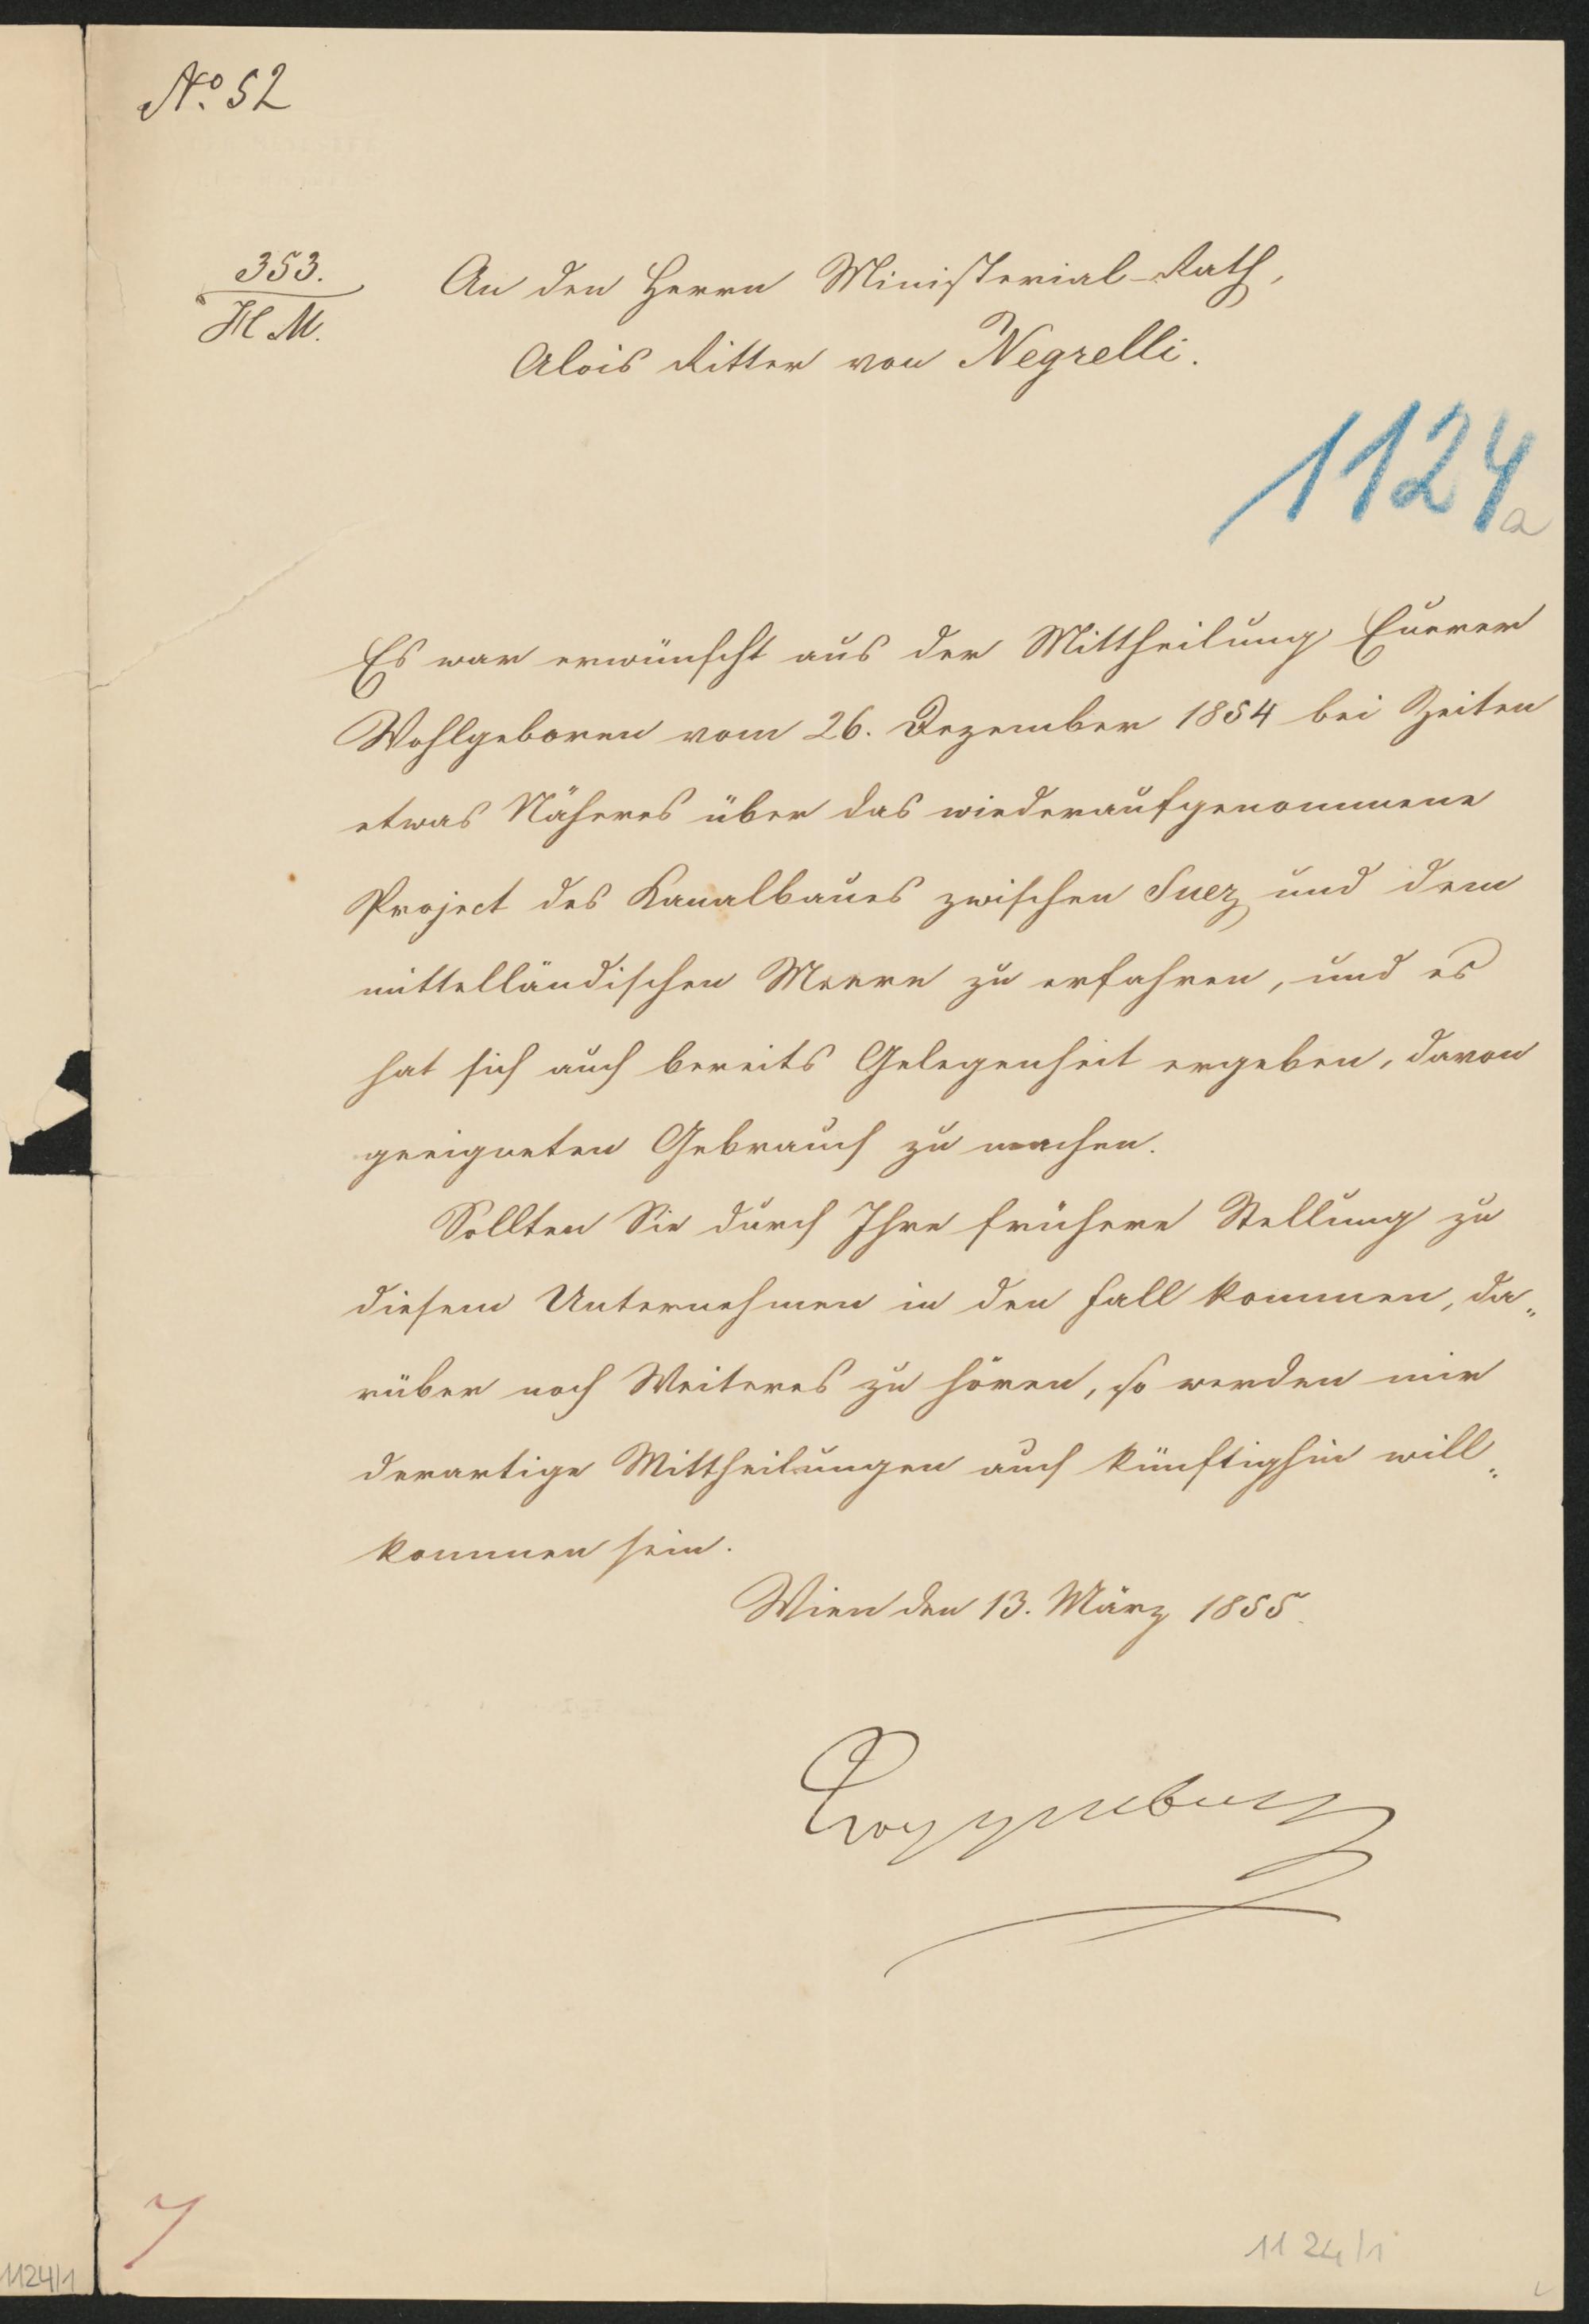 No. 52
353.
H M.
An den Herrn Ministerial-Rath,
Alois Ritter von Negrelli.
1124a
Es war erwünscht aus der Mittheilung Euerer
Wohlgeboren vom 26. Dezember 1854 bei Zeiten
etwas Näheres über das wiederaufgenommene
Project des Kanalbaues zwischen Suez und dem
mittelländischen Meere zu erfahren, und es
hat sich auch bereits Gelegenheit ergeben, davon
geeigneten Gebrauch zu machen.
Sollten Sie durch Ihre frühere Stellung zu
diesem Unternehmen in den Fall kommen, da„
rüber noch Weiteres zu hören, so werden mir
derartige Mittheilungen auch künftighin will„
kommen sein.
Wien den 13. März 1855.
Toggenburg
7
1124/1
1124/1